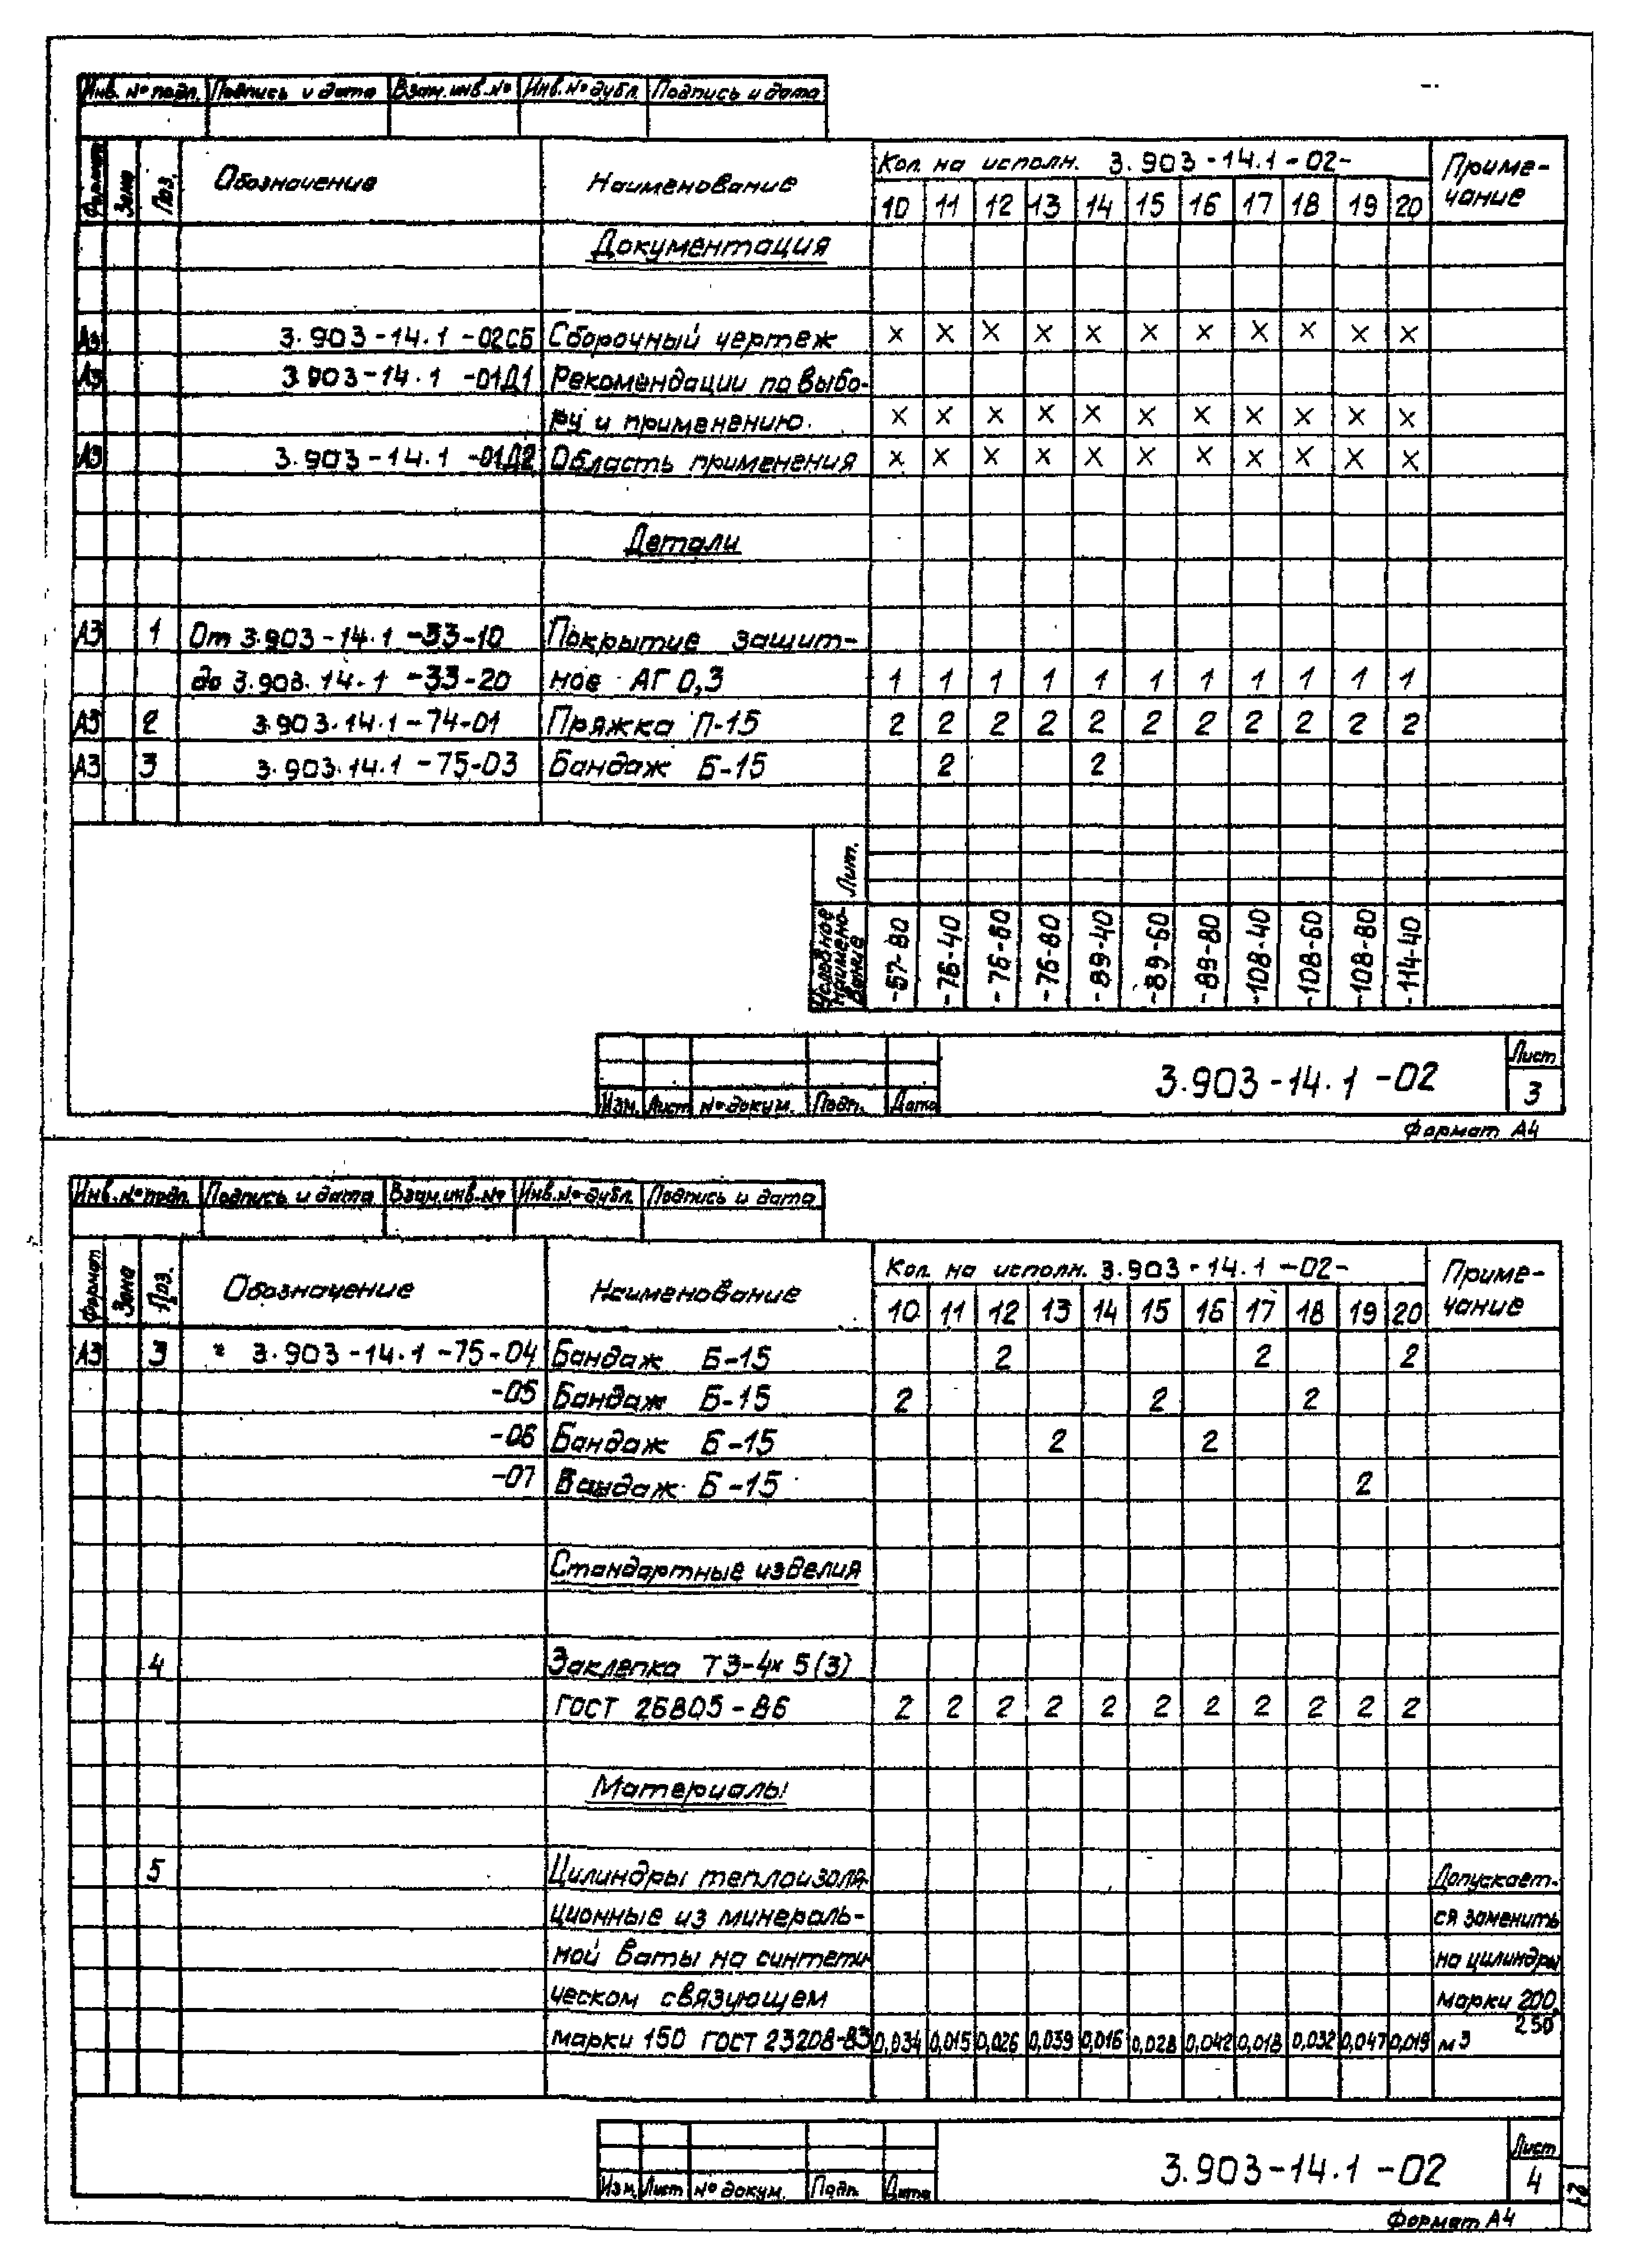 Инв. № подл. Подпись и дата Взам. инв. № Инв. № дубл. Подпись и дата
Формат Зона Поз. Обозначение Наименование Кол. на исполн. 3.903-14.1-02- Приме-
чание
10 11 12 13 14 15 16 17 18 19 20
Документация
А3 3.903-14.1-02СБ Сборочный чертеж × × × × × × × × × × ×
А3 3.903-14.1-01Д1 Рекомендации по выбо-
ру и применению. × × × × × × × × × × ×
А3 3.903-14.1-01Д2 Область применения × × × × × × × × × × ×
Детали
А3 1 От 3.903-14.1-33-10 Покрытие защит-
до 3.903.14.1-33-20 ное АГ 0,3 1 1 1 1 1 1 1 1 1 1 1
А3 2 3.903.14.1-74-01 Пряжка П-15 2 2 2 2 2 2 2 2 2 2 2
А3 3 3.903.14.1-75-03 Бандаж Б-15 2 2
Лит.
Условное наимено-вание -57-80 -76-40 -76-60 -76-80 -89-40 -89-60 -89-80 -108-40 -108-60 -108-80 -114-40
3.903-14.1-02
Лист
3
Изм. Лист № докум. Подп. Дата
Формат А4
Инв. № подл. Подпись и дата Взам. инв. № Инв. № дубл. Подпись и дата
Формат Зона Поз. Обозначение Наименование Кол. на исполн. 3.903-14.1-02- Приме-
чание
10 11 12 13 14 15 16 17 18 19 20
А3 3 * 3.903-14.1-75-04 Бандаж Б-15 2 2 2
-05 Бандаж Б-15 2 2 2
-06 Бандаж Б-15 2 2
-07 Бандаж Б-15 2
Стандартные изделия
4 Заклепка ТЗ-4×5(3)
ГОСТ 26805-86 2 2 2 2 2 2 2 2 2 2 2
Материалы
5 Цилиндры теплоизоля- Допускает-
ционные из минераль- ся заменить
ной ваты на синтети- на цилиндры
ческом связующем марки 200,
250
марки 150 ГОСТ 23208-83 0,034 0,015 0,026 0,039 0,016 0,028 0,042 0,018 0,032 0,047 0,019 м3
3.903-14.1-02
Лист
4
Изм. Лист № докум. Подп. Дата
Формат А4